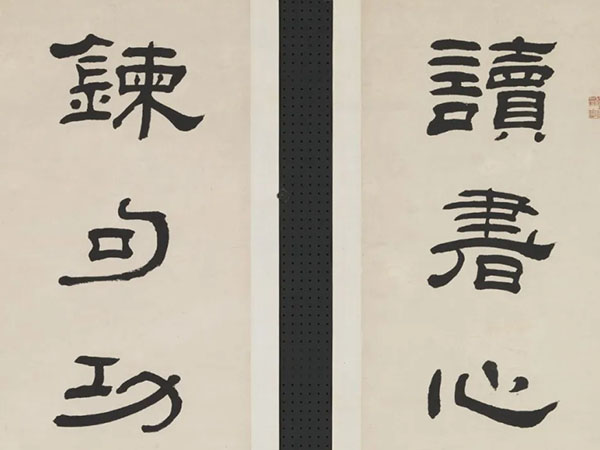 讀書心
鍊句功